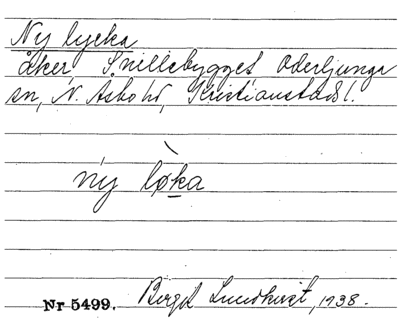 Ny lycka
åker, Snillebygget, Oderljunga
sn, N. Åsbo hd, Kristianstads l.
ny løka
Nr 5499. Birgit Lundkvist, 1938.